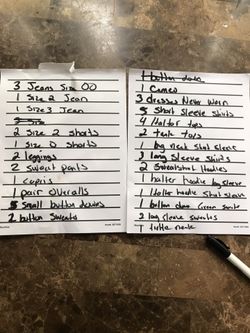 3 Jeans Size 00
1 Size 2 Jean
1 Size 3 Jean
2 Size 2 shorts
1 Size 0 shorts
2 leggings
2 sweat pants
1 capris
1 pair overalls
5 small button downs
2 button sweats
1 button down
1 Cameo
3 dresses Never Worn
5 Short Sleeve Shirts
4 Halter tops
2 tank tops
1 big neck shot sleeve
3 long Sleeve shirts
2 Sweatshirt Hoodies
1 halter hoodie long sleeve
1 Halter hoodie Shot sleeve
1 button down Green
2 long sleeve sweates
1 turtle neck